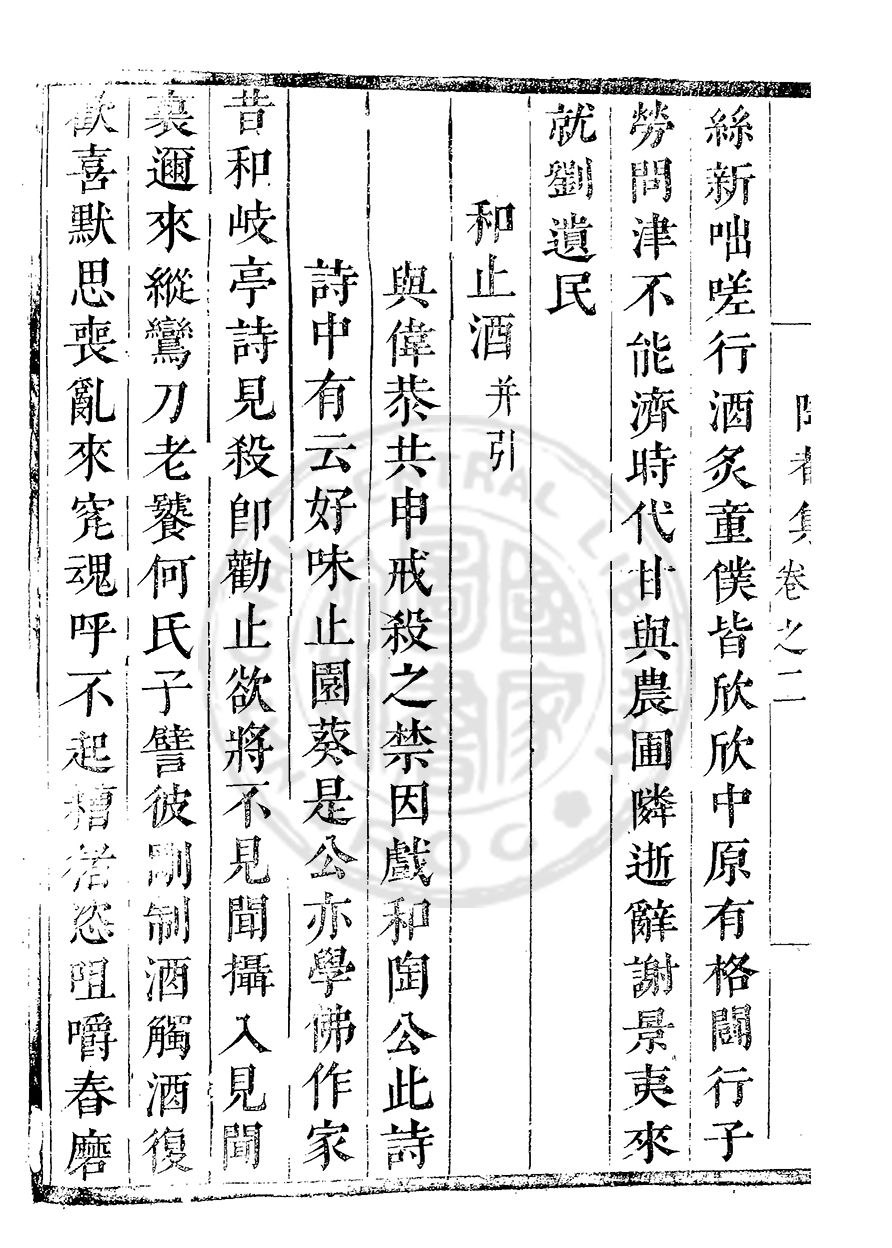 卷之二
絲新咄嗟行酒炙童僕皆欣欣中原有格鬬行子
勞問津不能濟時代甘與農圃隣逝辭謝景夷來
就劉遺民
和止酒并引
與偉恭共申戒殺之禁因戲和陶公此詩
詩中有云好味止園葵是公亦學佛作家
昔和岐亭詩見殺卽勸止欲將不見聞攝入見聞
裏邇來縱鸞刀老饕何氏子譬彼剛制酒觸酒復
歡喜默思喪亂來寃魂呼不起積恣咀嚼舂磨